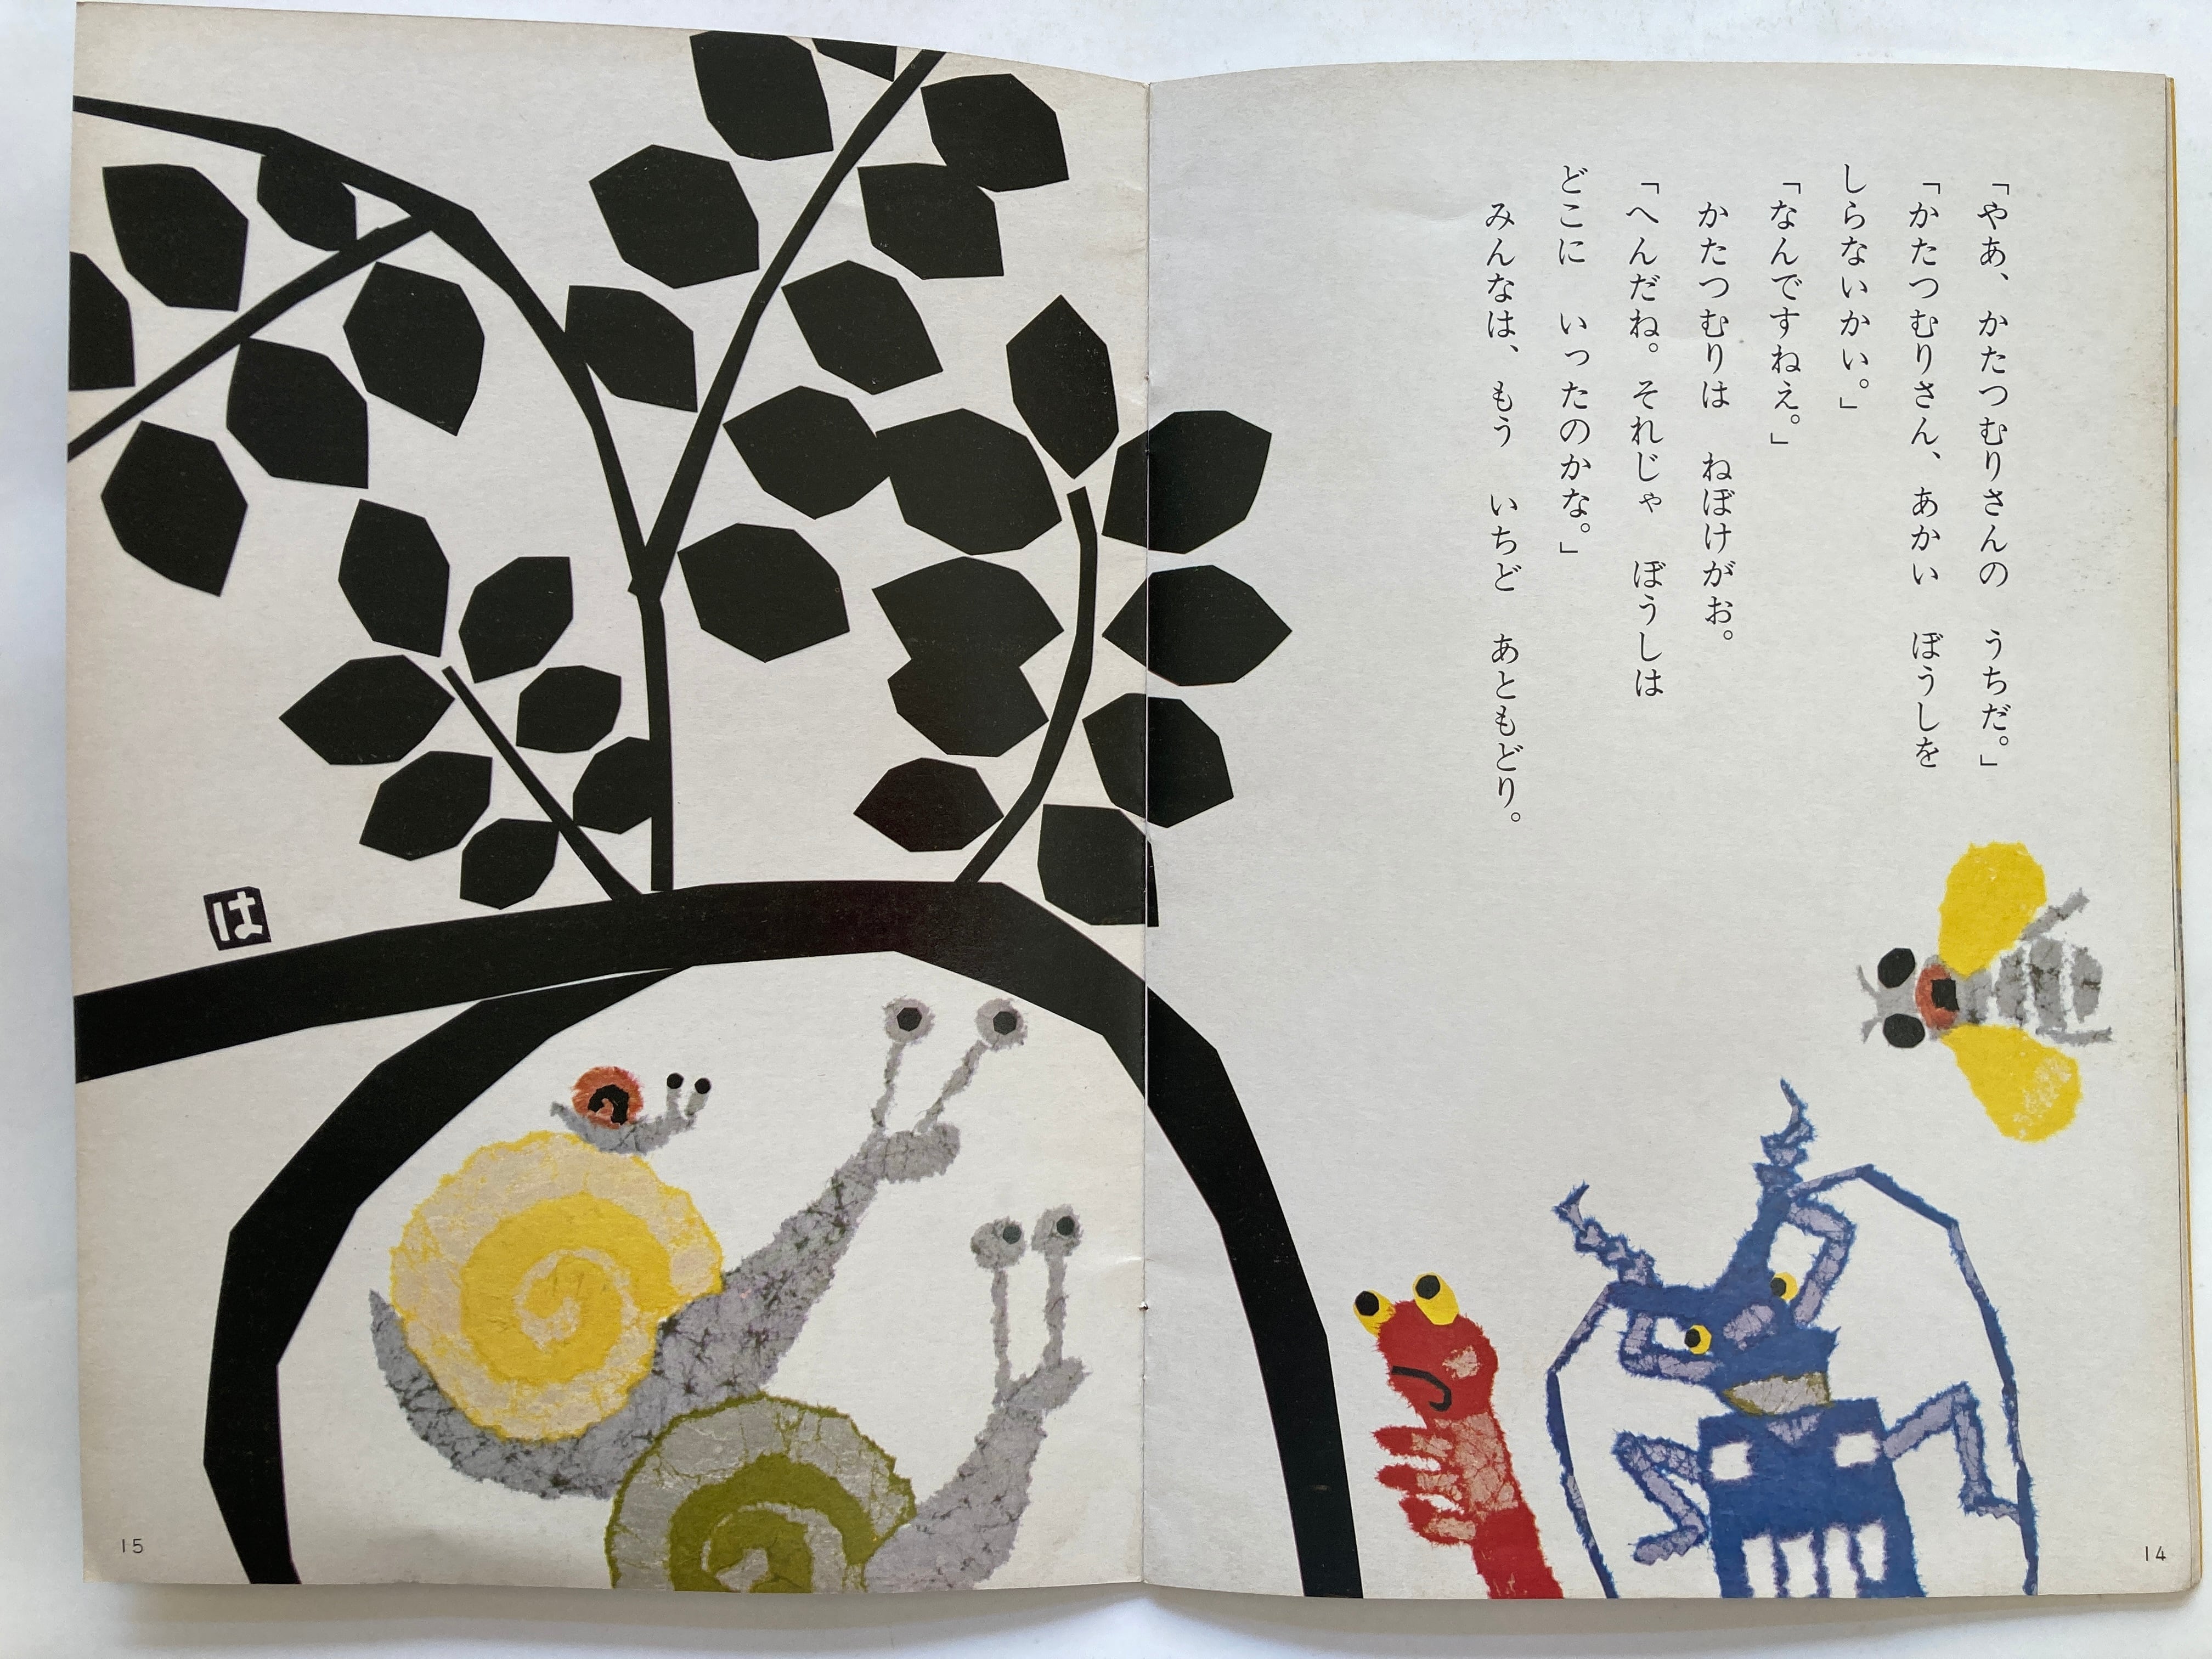 「やあ、かたつむりさんの　うちだ。」
「かたつむりさん、あかい　ぼうしを
しらないかい。」
「なんですねえ。」
かたつむりは　ねぼけがお。
「へんだね。それじゃ　ぼうしは
どこに　いったのかな。」
みんなは、もう　いちど　あともどり。
14
は
15